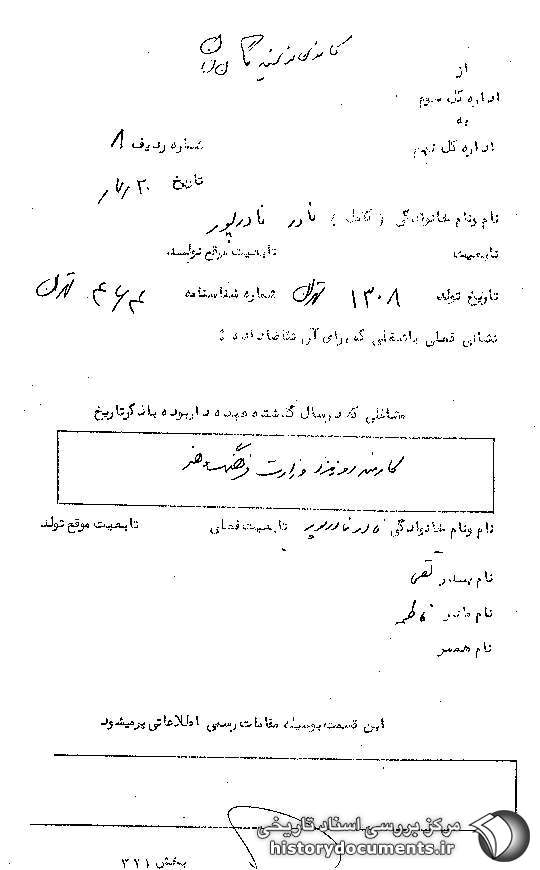 از
اداره کل سوم
به
اداره کل نهم
شماره ردیف ۸
تاریخ
نام ونام خانوادگی ( کامل ) نادر نادرپور
تابعیت تابعیت موقع تولد
تاریخ تولد ۱۳۰۸ تهران شماره شناسنامه تهران
نشانی فعلی یا شغلی که برای آن تقاضا داده :
مشاغلی که در سال گذشته عهده دار بوده با ذکر تاریخ
کارمند روزمزد وزارت فرهنگ و هنر
نام ونام خانوادگی نادر نادرپور تابعیت فعلی تابعیت موقع تولد
نام پدر تقی
نام مادر فاطمه
نام همسر
این قسمت بوسیله مقامات رسمی اطلاعاتی پر میشود
مرکز بررسی اسناد تاریخی
historydocuments.ir
بخش ۳۲۱